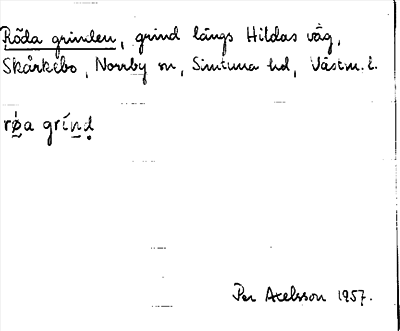 Röda grinden, grind längs Hildas väg,
Skårkebo, Norrby sn, Simtuna hd, Västm. l.
rø̀a grínḍ
Per Axelsson 1957.